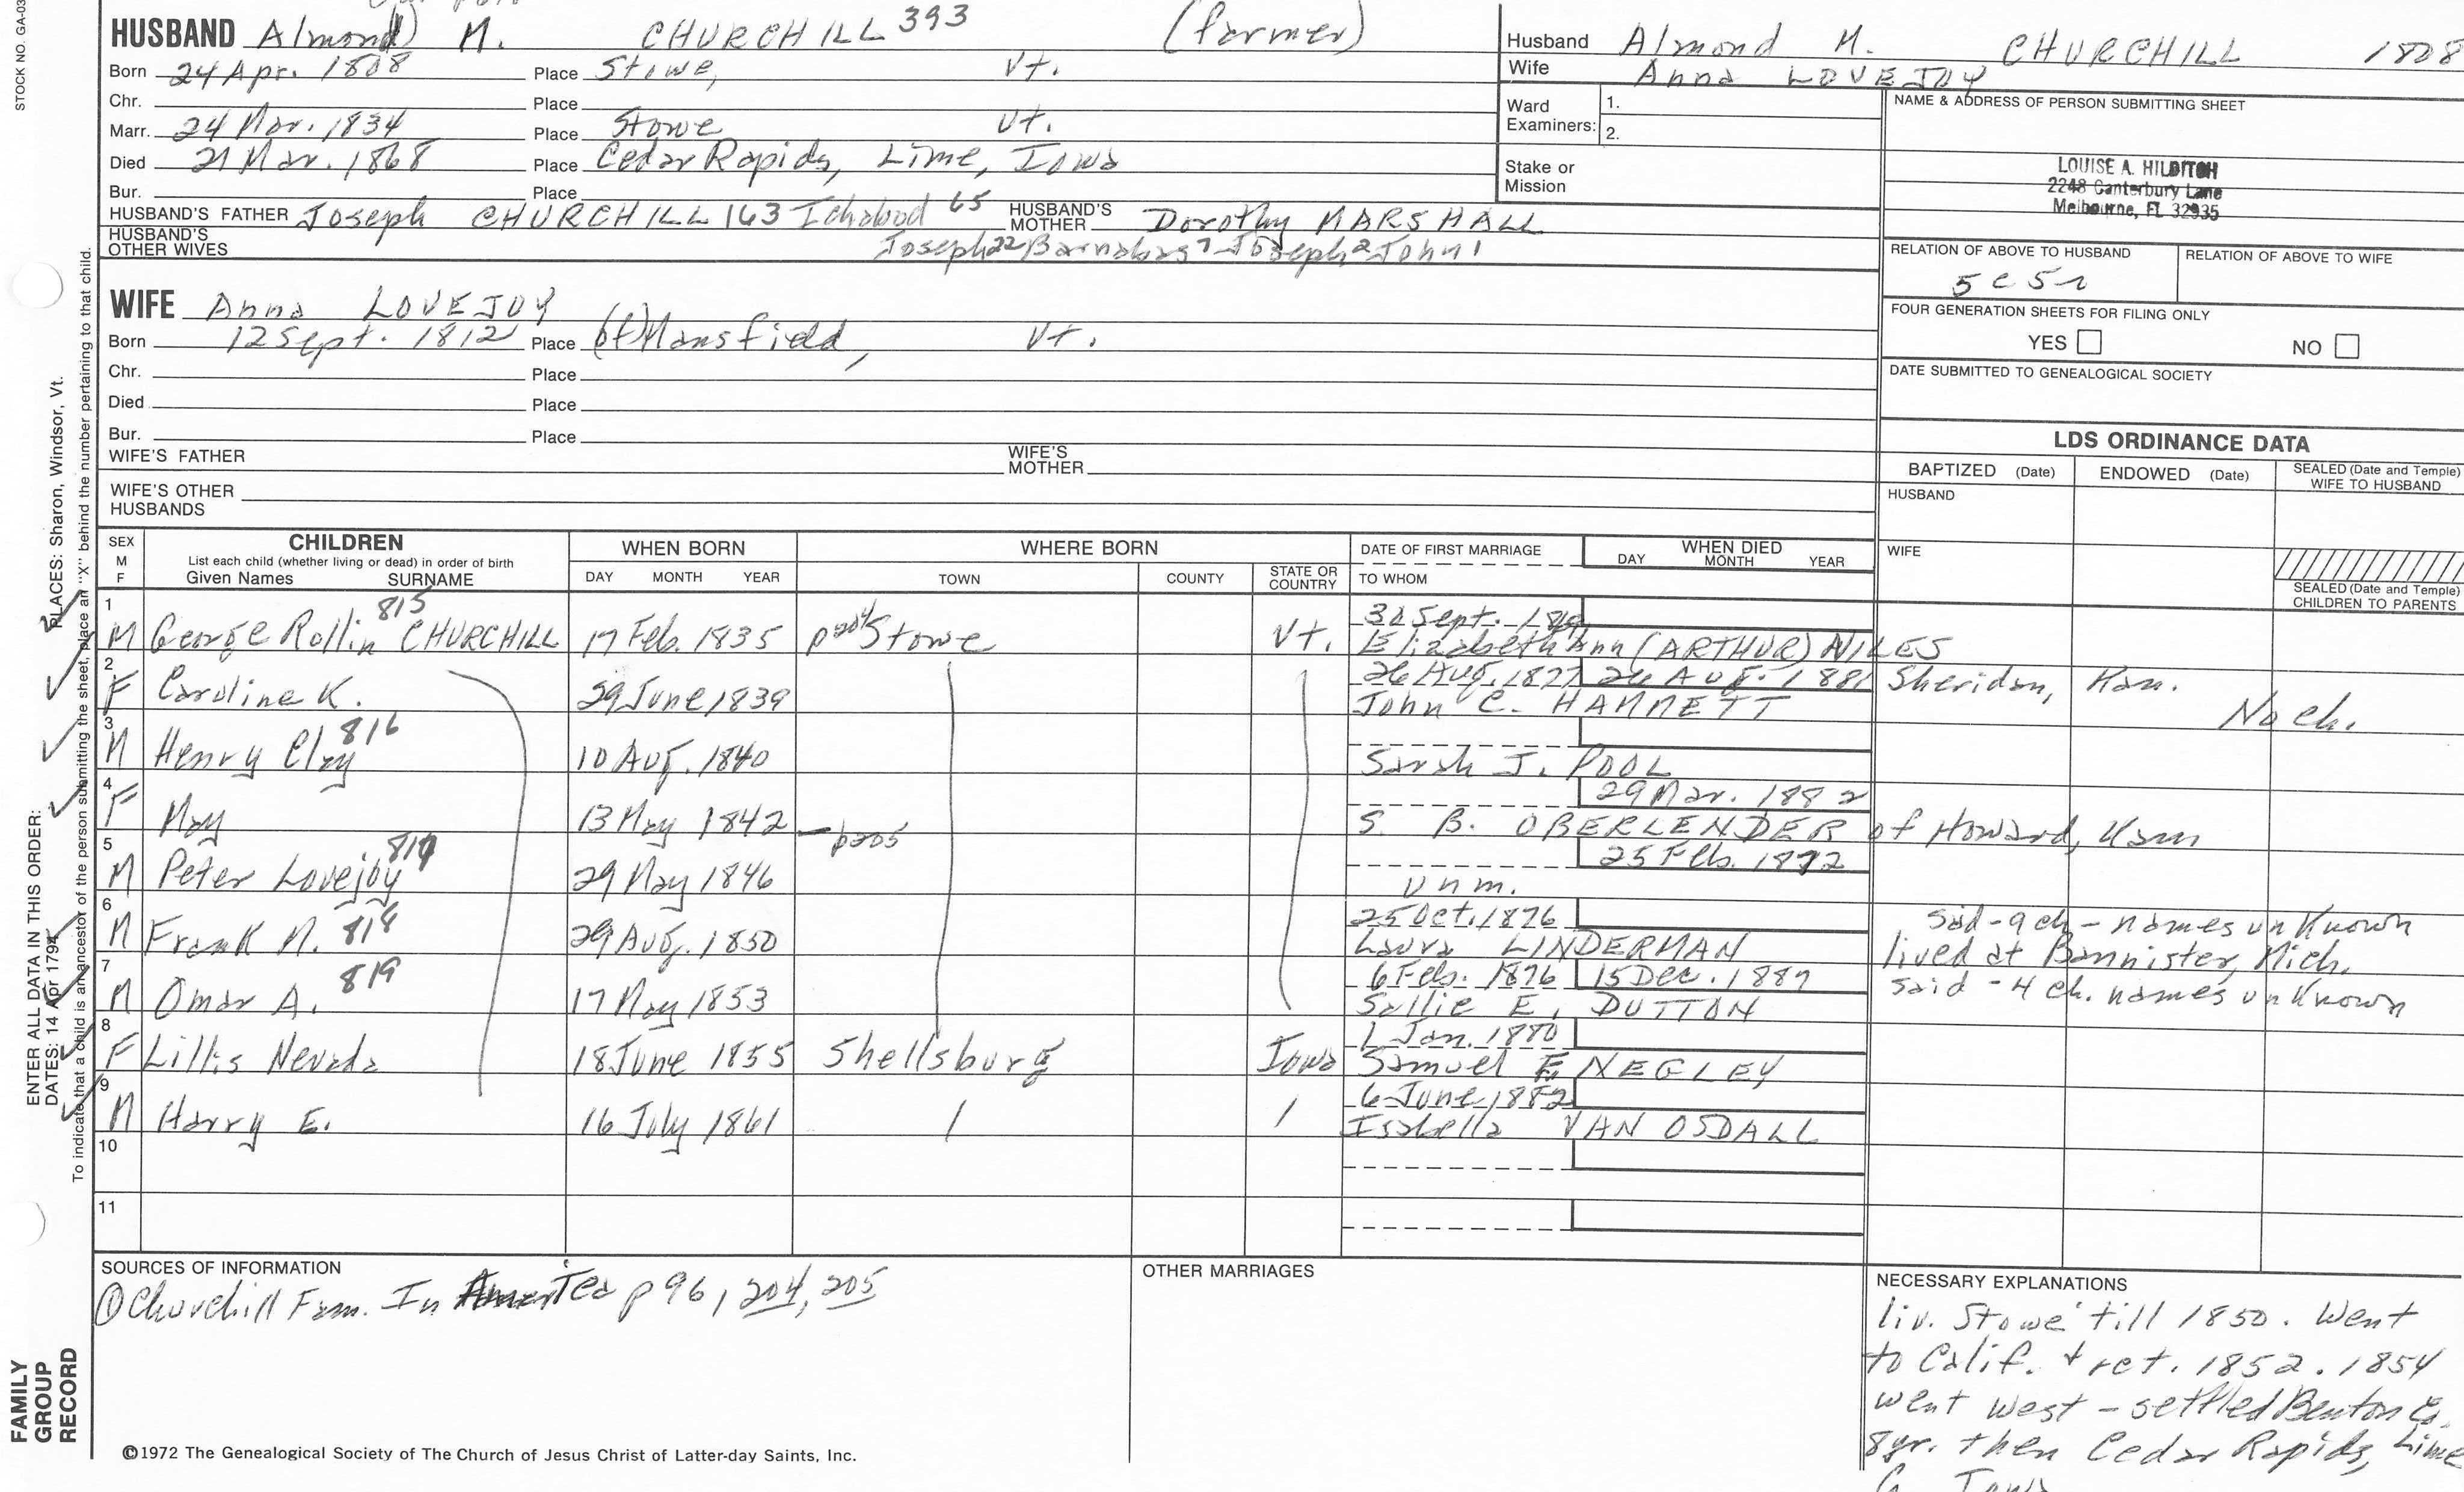 STOCK NO. GA-03
HUSBAND Almond M. CHURCHILL 393 (farmer)
Born 24 Apr. 1808 Place Stowe, Vt.
Chr. Place
Marr. 24 Mar. 1834 Place Stowe Vt.
Died 21 Mar. 1868 Place Cedar Rapids, Lime, Iowa
Bur. Place
HUSBAND'S FATHER Joseph CHURCHILL 163 Ichabod 65 HUSBAND'S MOTHER Dorothy MARSHALL
HUSBAND'S OTHER WIVES Joseph 22 Barnabas 7 Joseph 2 John 1
Husband Almond M. CHURCHILL 1808
Wife Anna LOVEJOY
Ward Examiners: 1.
2.
Stake or Mission
NAME & ADDRESS OF PERSON SUBMITTING SHEET
LOUISE A. HILDITCH
2248 Canterbury Lane
Melbourne, FL 32935
RELATION OF ABOVE TO HUSBAND RELATION OF ABOVE TO WIFE
5 c 5 r
FOUR GENERATION SHEETS FOR FILING ONLY
YES NO
DATE SUBMITTED TO GENEALOGICAL SOCIETY
WIFE Anna LOVEJOY
Born 12 Sept. 1812 Place (of) Mansfield, Vt.
Chr. Place
Died Place
Bur. Place
WIFE'S FATHER WIFE'S MOTHER
WIFE'S OTHER HUSBANDS
LDS ORDINANCE DATA
BAPTIZED (Date) ENDOWED (Date) SEALED (Date and Temple) WIFE TO HUSBAND
HUSBAND
WIFE
SEALED (Date and Temple) CHILDREN TO PARENTS
SEX M F CHILDREN List each child (whether living or dead) in order of birth Given Names SURNAME
WHEN BORN DAY MONTH YEAR
WHERE BORN TOWN COUNTY STATE OR COUNTRY
DATE OF FIRST MARRIAGE TO WHOM
WHEN DIED DAY MONTH YEAR
1 M George Rollin CHURCHILL 815 17 Feb. 1835 p204 Stowe Vt. 30 Sept.
Elizabeth Ann (ARTHUR) NILES
2 F Caroline K. 29 June 1839 26 Aug. 1877 26 Aug. 1881 Sheridan, Kan.
John C. HAMMETT No ch.
3 M Henry Clay 816 10 Aug. 1840
Sarah J. POOL
4 F May 13 May 1842 29 Mar. 1882
S. B. OBERLENDER of Howard, Kan
5 M Peter Lovejoy 817 29 May 1846 p205 25 Feb. 1872
unm.
6 M Frank M. 818 29 Aug. 1850 25 Oct. 1876 said - 9 ch - names unknown
Laura LINDERMAN lived at Bannister, Mich.
7 M Omar A. 819 17 May 1853 6 Feb. 1876 15 Dec. 1887 said - 4 ch. names unknown
Sallie E. DUTTON
8 F Lillis Nevada 18 June 1855 Shellsburg Iowa 1 Jan. 1880
Samuel E. NEGLEY
9 M Harry E. 16 July 1861 6 June 1882
Isabella VAN OSDALL
10
11
SOURCES OF INFORMATION
① Churchill Fam. In America p 96, 204, 205
OTHER MARRIAGES
NECESSARY EXPLANATIONS
liv. Stowe till 1850. Went
to Calif. + ret. 1852. 1854
went west - settled Benton Co.
8 yr. then Cedar Rapids, Lime
Co. Iowa
©1972 The Genealogical Society of The Church of Jesus Christ of Latter-day Saints, Inc.
FAMILY GROUP RECORD
ENTER ALL DATA IN THIS ORDER:
DATES: 14 Apr 1794 PLACES: Sharon, Windsor, Vt.
To indicate that a child is an ancestor of the person submitting the sheet, place an "X" behind the number pertaining to that child.